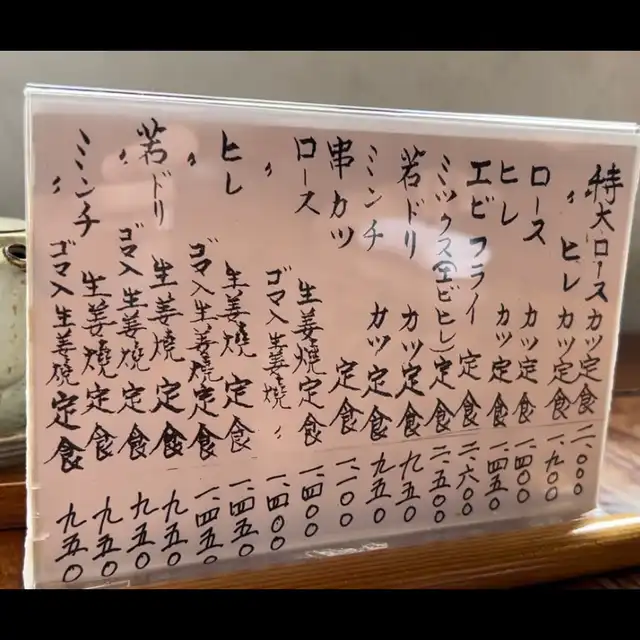 特大ロース カツ定食 二、〇〇〇
〃 ヒレ カツ定食 一、九〇〇
ロース カツ定食 一、四〇〇
ヒレ カツ定食 一、四五〇
エビフライ 定食 二、六〇〇
ミックス(エビヒレ)定食 二、五〇〇
若ドリ カツ定食 九五〇
ミンチ カツ定食 九五〇
串カツ 定食 一、一〇〇
ロース 生姜燒定食 一、四〇〇
〃 ゴマ入生姜燒〃 一、四〇〇
ヒレ 生姜燒定食 一、四五〇
〃 ゴマ入生姜燒定食 一、四五〇
若ドリ 生姜燒定食 九五〇
〃 ゴマ入生姜燒定食 九五〇
ミンチ 生姜燒定食 九五〇
〃 ゴマ入生姜燒定食 九五〇